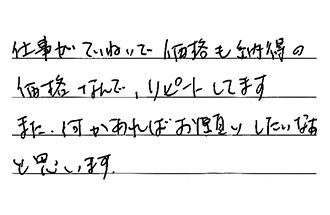 仕事がていねいで価格も納得の
価格なんで、リピートしてます
また、何かあればお願いしたいなあ
と思います。